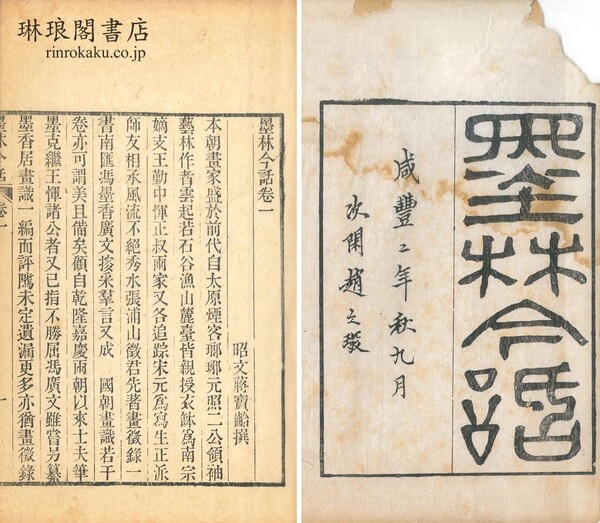 琳琅閣書店
rinrokaku.co.jp
墨林今話
咸豐二年秋九月
次閑趙之琛
墨林今話卷一
昭文蔣寶齡撰
本朝畫家盛於前代自太原煙客瑯琊元照二公領袖
藝林作者雲起若石谷漁山麓臺皆親授衣鉢為南宗
嫡支王勤中惲正叔兩家又各追踪宋元為寫生正派
師友相承風流不絕秀水張浦山徵君先著畫徵錄一
書南匯馮墨香廣文搜采羣言又成 國朝畫識若干
卷亦可謂美且備矣顧自乾隆嘉慶兩朝以來士夫筆
墨克繼王惲諸公者又已指不勝屈馮廣文雖嘗另纂
墨香居畫識一編而評隲未定遺漏更多亦猶畫徵錄
墨林今話 卷一 一